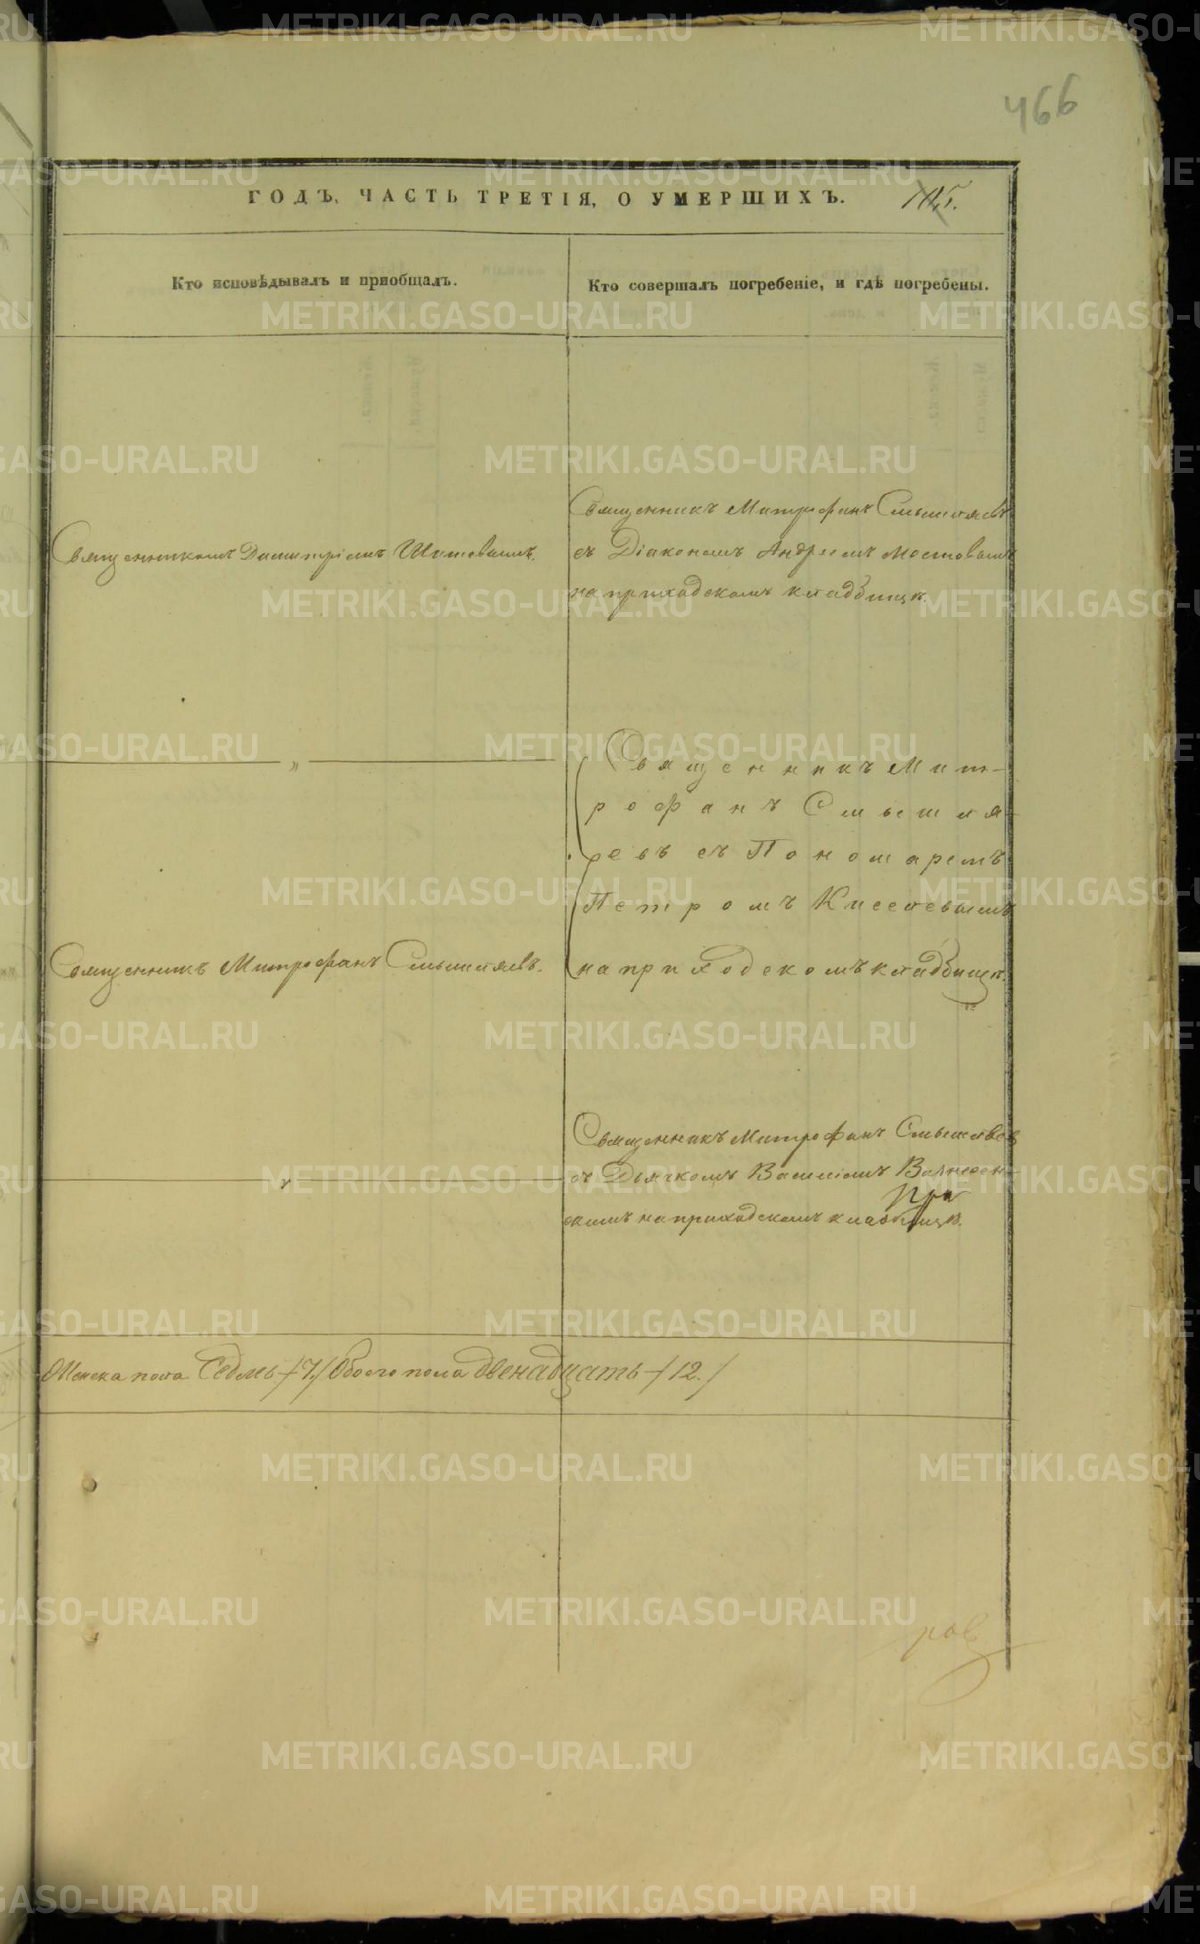 466
ГОДЪ. ЧАСТЬ ТРЕТІЯ, О УМЕРШИХЪ.
Кто исповѣдывалъ и приобщалъ.
Кто совершалъ погребеніе, и гдѣ погребены.
Священникомъ Димитріемъ Шитовымъ.
Священникъ Митрофанъ Смышляевъ
съ Діакономъ Андреемъ Мостовымъ
на приходскомъ кладбищѣ.
Священникъ Мит-
рофанъ Смышля-
евъ съ Пономаремъ
Петромъ Киселевымъ
на приходскомъ кладбищѣ.
Священникъ Митрофанъ Смышляевъ.
Священникъ Митрофанъ Смышляевъ
съ Дьячкомъ Василіемъ Вознесен-
скимъ на приходскомъ кладбищѣ.
При
Женска пола Седмь /7./ Обоего пола двенадцать /12./
ров
METRIKI.GASO-URAL.RU